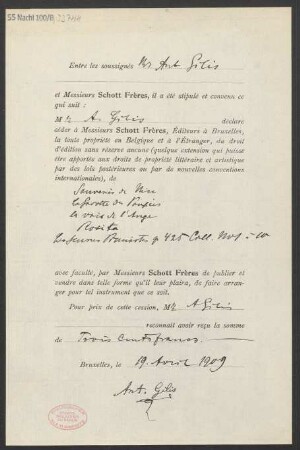 55 Nachl 100/B,
Entre les soussignés Mr Ant Gilis
et Messieurs Schott Frères, il a été stipulé et convenu ce
qui suit :
M r A. Gilis déclare
céder à Messieurs Schott Frères, Éditeurs à Bruxelles,
la toute propriété en Belgique et à l'Étranger, du droit
d'édition sans réserve aucune (quelque extension qui puisse
être apportée aux droits de propriété littéraire et artistique
par des lois postérieures ou par de nouvelles conventions
internationales), de
Souvenir de
la Gavotte du
la voix de l'Ange
Rosita
Le Jeune 425 Coll. No 1 - 10
avec faculté, par Messieurs Schott Frères de publier et
vendre dans telle forme qu'il leur plaira, de faire arran-
ger pour tel instrument que ce soit.
Pour prix de cette cession, Mr A Gilis
reconnait avoir reçu la somme
de Trois Cents francs
Bruxelles, le 19 Avril 1909
Ant. Gilis